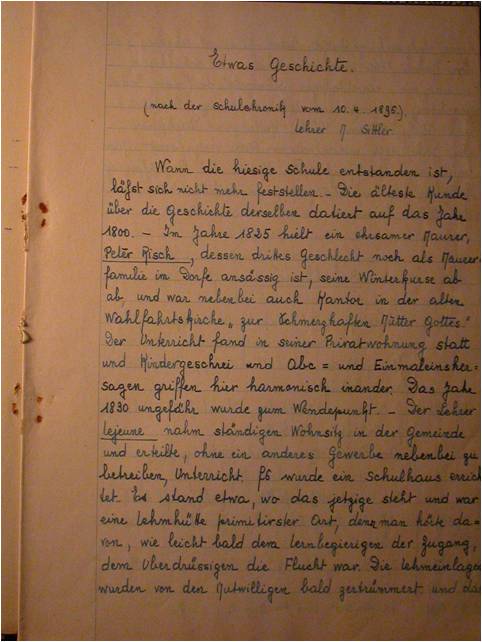 Etwas Geschichte.
(nach der Schulchronik vom 10.4.1895).
Lehrer N. Sittler
Wann die hiesige Schule entstanden ist,
läfst sich nicht mehr feststellen. - Die älteste Kunde
über die Geschichte derselben datiert auf das Jahr
1800. - Im Jahre 1825 hielt ein ehrsamer Maurer,
Peter Risch, dessen drittes Geschlecht noch als Maurer-
familie im Dorfe ansässig ist, seine Winterkurse ab
ab, und war nebenbei auch Kantor in der alten
Wahlfahrtskirche „zur Schmerzhaften Mutter Gottes."
Der Unterricht fand in seiner Privatwohnung statt
und Kindergeschrei und Abc = und Einmaleinsher=
sagen griffen hier harmonisch inander. Das Jahr
1830 ungefähr wurde zum Wendepunkt. - Der Lehrer
Lejeune nahm ständigen Wohnsitz in der Gemeinde
und erteilte, ohne ein anderes Gewerbe nebenbei zu
betreiben, Unterricht. Es wurde ein Schulhaus errich
tet. Es stand etwa, wo das jetzige steht und war
eine Lehmhütte primitivster Art, denn man hörte da=
von, wie leicht bald dem Lernbegierigen der Zugang,
dem Überdrüssigen die Flucht war. Die Lehmeinlagen
wurden von den Mutwilligen bald zertrümmert und das